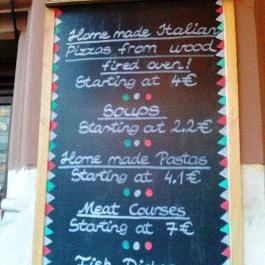 Home made Italian
Pizzas from wood
fired oven!
Starting at 4€
Soups
Starting at 2,2€
Home made Pastas
Starting at 4.1€
Meat Courses
Starting at 7€
Fish Dishes